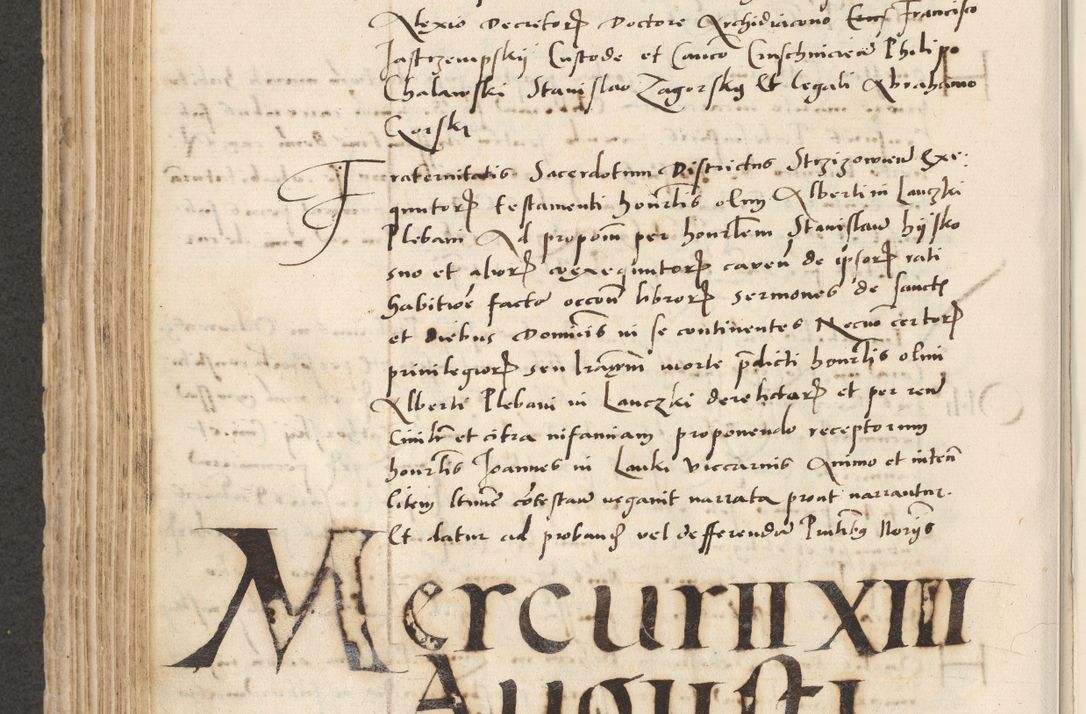 Alexio Decretorꝝ Doctore Archidiacono Francisco
Jastrzempskij Custode et Canco Philipo
Chalawski Stanislao Zagorskij Et legali Abrahamo
Gorski
Fraternitatis Sacerdotum Districtus Strzizowien Exe-
quutorꝝ testamenti honrlis olim Alberti in Lanczki
Plebani Ad propom per honrlem Stanislaum hyisko
suo et aliorꝝ coexequutorꝝ caven de ipsorꝝ rati
habitioe facto occon librorꝝ sermones de sanctis
et diebus Domicis in se continentes Necno certorꝝ
privilegiorꝝ seu lrarum morte pdicti honrlis olim
Alberti Plebani in Lanczki derelictarꝝ et per reum
Civilr et citra infamiam proponendo receptorum
honrlis Joannes in Lanki viccarius Animo et inten
litem ltime cotestan negavit narrata prout narrantur.
Et datur ad proband vel defferendum Pntibus Noriis
Mercurii XIII
Augusti